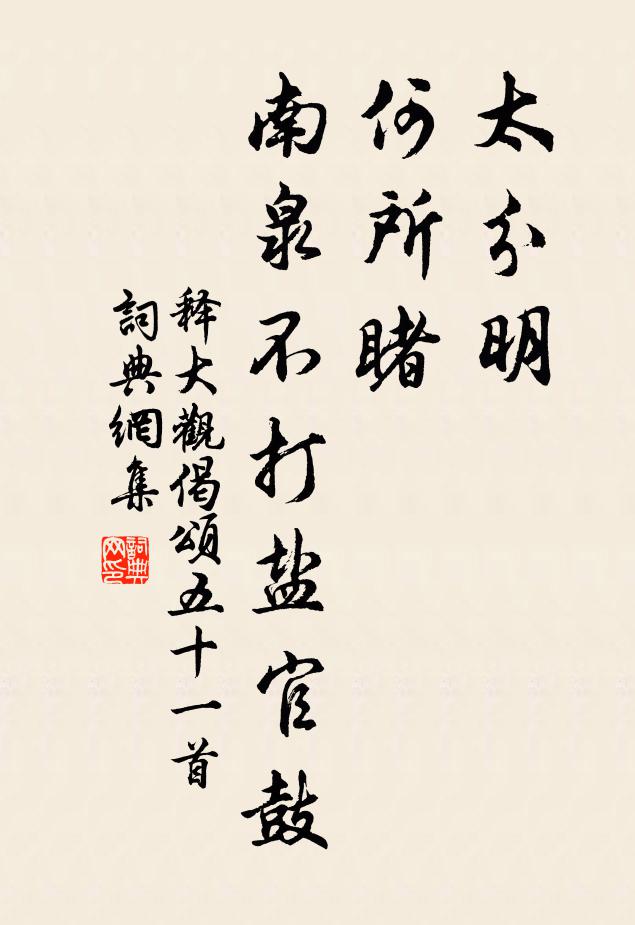 太分明
何所睹
南泉不打盐官鼓
释大觀偈頌五十一首
詞典網集
詞典網印